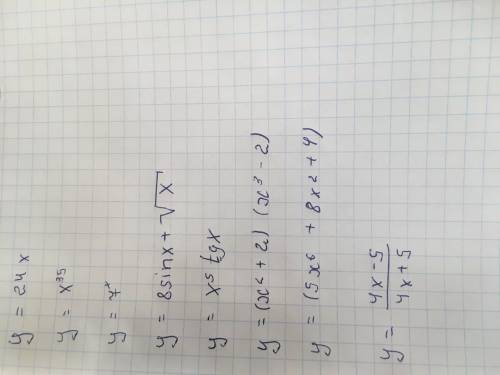 y = 24x
y = x³⁵
y = 7ˣ
y = 8sinx + √x
y = x⁵ tgx
y = (x² + 2) (x³ - 2)
y = (5x⁶ + 8x² + 4)
y = (4x - 5)/(4x + 5)